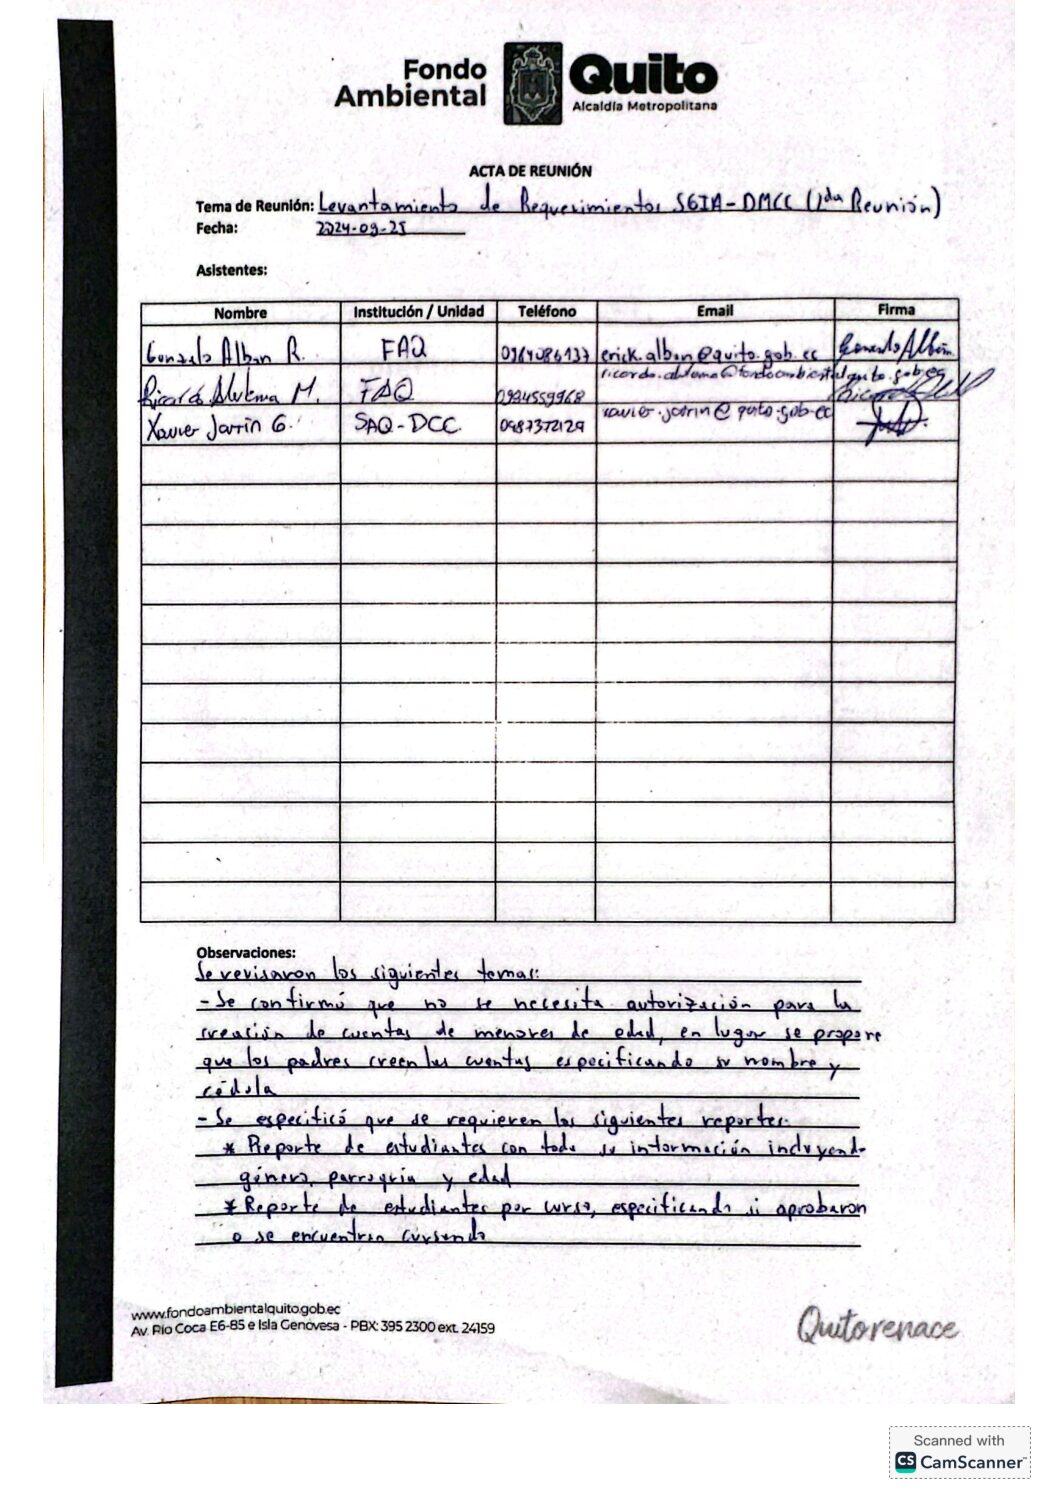 Fondo
Ambiental
Quito
Alcaldía Metropolitana
ACTA DE REUNIÓN
Tema de Reunión: Levantamiento de Requerimientos SGIA-DMCC (2da Reunión)
Fecha: 2024-09-25
Asistentes:
Nombre Institución / Unidad Teléfono Email Firma
Gonzalo Alban R. FAQ erick.alban@quito.gob.ec Gonzalo Albán
Ricardo M. FAQ
Xavier Jarrín G. SAQ-DCC 0987372129 xavier.jarrin@quito.gob.ec
Observaciones:
Se revisaron los siguientes temas:
- Se confirmó que no se necesita autorización para la
creación de cuentas de menores de edad, en lugar se propone
que los padres creen las cuentas especificando su nombre y
cédula
- Se especificó que se requieren los siguientes reportes:
* Reporte de estudiantes con toda su información incluyendo
género, parroquia y edad
* Reporte de estudiantes por curso, especificando si aprobaron
o se encuentran cursando
www.fondoambientalquito.gob.ec
Av. Río Coca E6-85 e Isla Genovesa - PBX: 395 2300 ext. 24159
Quito renace
Scanned with
CS CamScanner